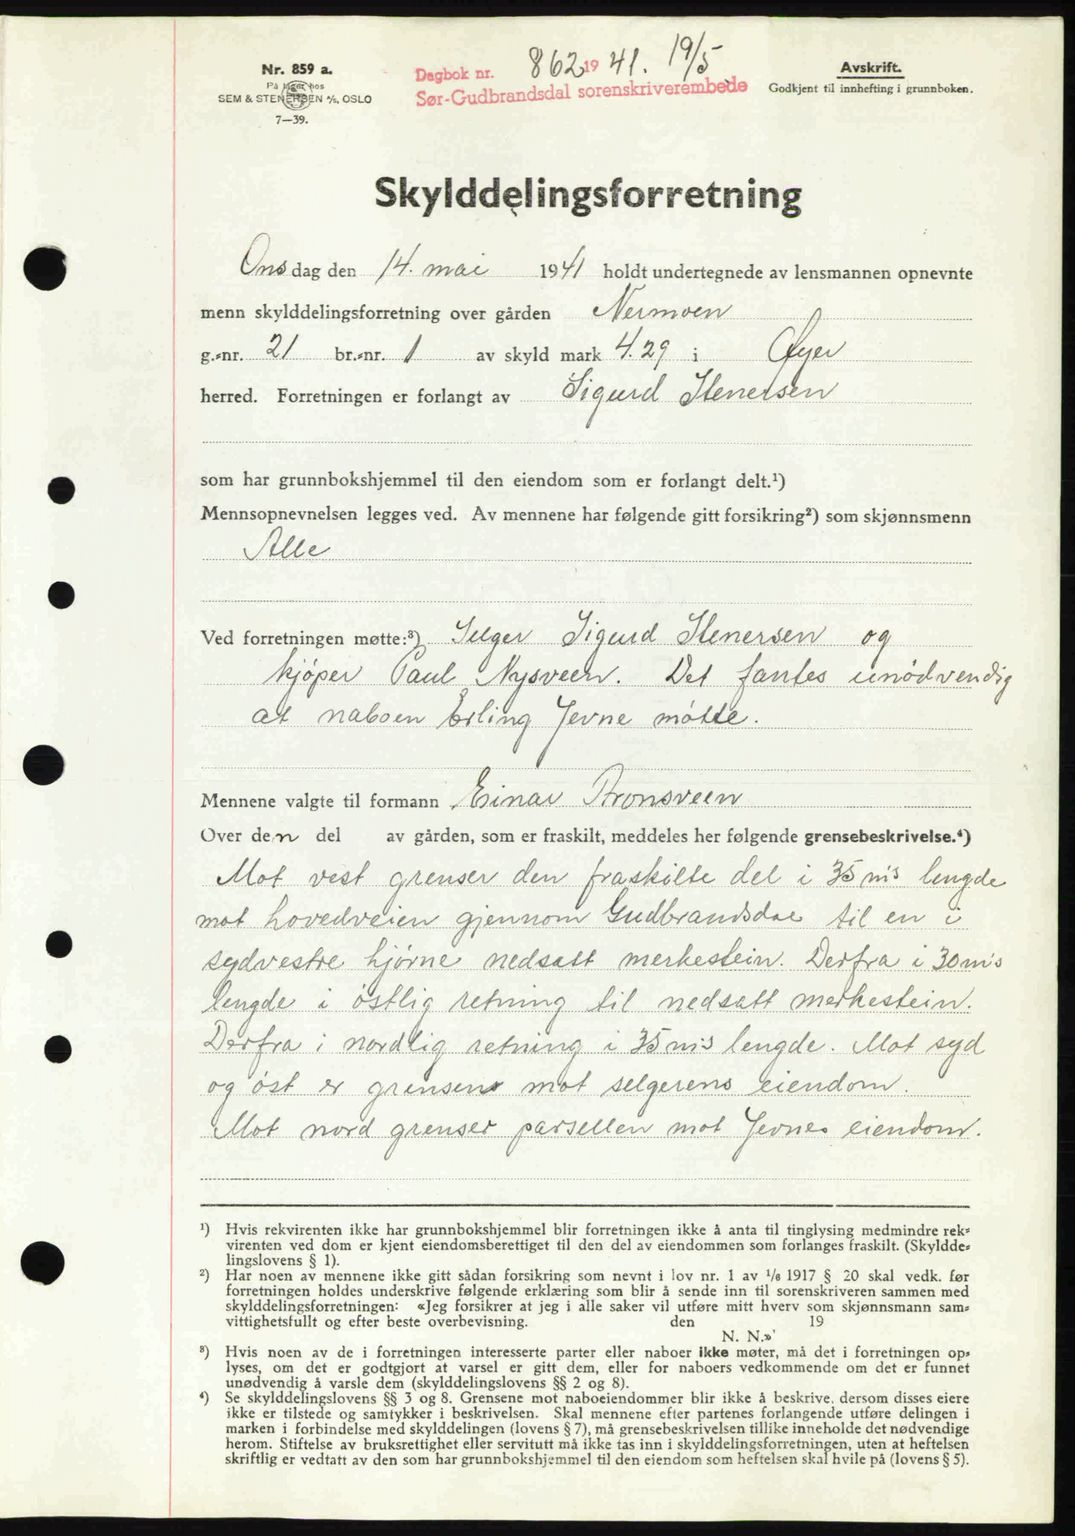 Nr. 859 a.
På lager hos
SEM & STENERSEN A/S, OSLO
7—39.
Dagbok nr. 862 1941. 19/5
Sør-Gudbrandsdal sorenskriverembede
Avskrift.
Godkjent til innhefting i grunnboken.
Skylddelingsforretning
Onsdag den 14. mai 1941 holdt undertegnede av lensmannen opnevnte
menn skylddelingsforretning over gården Nermoen
g.-nr. 21 br.-nr. 1 av skyld mark 4.29 i Øyer
herred. Forretningen er forlangt av Sigurd Stenersen
som har grunnbokshjemmel til den eiendom som er forlangt delt.¹)
Mennsopnevnelsen legges ved. Av mennene har følgende gitt forsikring²) som skjønnsmenn
Alle
Ved forretningen møtte:³) Selger Sigurd Stenersen og
kjöper Paul Nysveen. Det fantes unödvendig
at naboen Erling Jevne mötte.
Mennene valgte til formann Einar Bronsveen
Over den del av gården, som er fraskilt, meddeles her følgende grensebeskrivelse.⁴)
Mot vest grenser den fraskilte del i 35 m's lengde
mot hovedveien gjennom Gudbrandsdal til en i
sydvestre hjörne nedsatt merkestein. Derfra i 30 m's
lengde i östlig retning til nedsatt merkestein.
Derfra i nordlig retning i 35 m's lengde. Mot syd
og öst er grensen mot selgerens eiendom.
Mot nord grenser parsellen mot Jevnes eiendom.
¹) Hvis rekvirenten ikke har grunnbokshjemmel blir forretningen ikke å anta til tinglysing medmindre rek-
virenten ved dom er kjent eiendomsberettiget til den del av eiendommen som forlanges fraskilt. (Skyldde-
lingslovens § 1).
²) Har noen av mennene ikke gitt sådan forsikring som nevnt i lov nr. 1 av 1/6 1917 § 20 skal vedk. før
forretningen holdes underskrive følgende erklæring som blir å sende inn til sorenskriveren sammen med
skylddelingsforretningen: «Jeg forsikrer at jeg i alle saker vil utføre mitt hverv som skjønnsmann sam-
vittighetsfullt og efter beste overbevisning. den 19
N. N.»
³) Hvis noen av de i forretningen interesserte parter eller naboer ikke møter, må det i forretningen op-
lyses, om det er godtgjort at varsel er gitt dem, eller for naboers vedkommende om det er funnet
unødvendig å varsle dem (skylddelingslovens §§ 2 og 8).
⁴) Se skylddelingslovens §§ 3 og 8. Grensene mot naboeiendommer blir ikke å beskrive, dersom disses eiere
ikke er tilstede og samtykker i beskrivelsen. Skal mennene efter partenes forlangende utføre delingen i
marken i forbindelse med skylddelingen (lovens § 7), må grensebeskrivelsen tillike inneholde det nødvendige
herom. Stiftelse av bruksrettighet eller servitutt må ikke tas inn i skylddelingsforretningen, uten at heftelsen
skriftlig er vedtatt av den som har grunnbokshjemmel til den eiendom som heftelsen skal hvile på (lovens § 5).